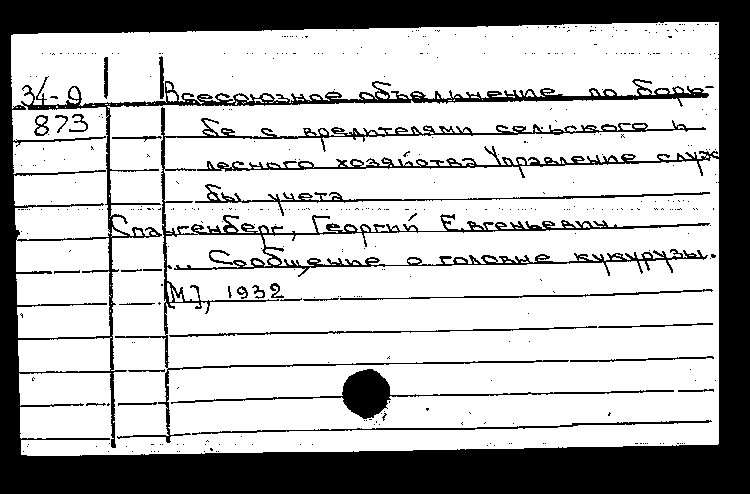 34-9 Всесоюзное объединение по борь-
873 бе с вредителями сельского и
лесного хозяйства Управление служ
бы учета
Спангенберг, Георгий Евгеньевич.
... Сообщение о головне кукурузы.
[М.], 1932